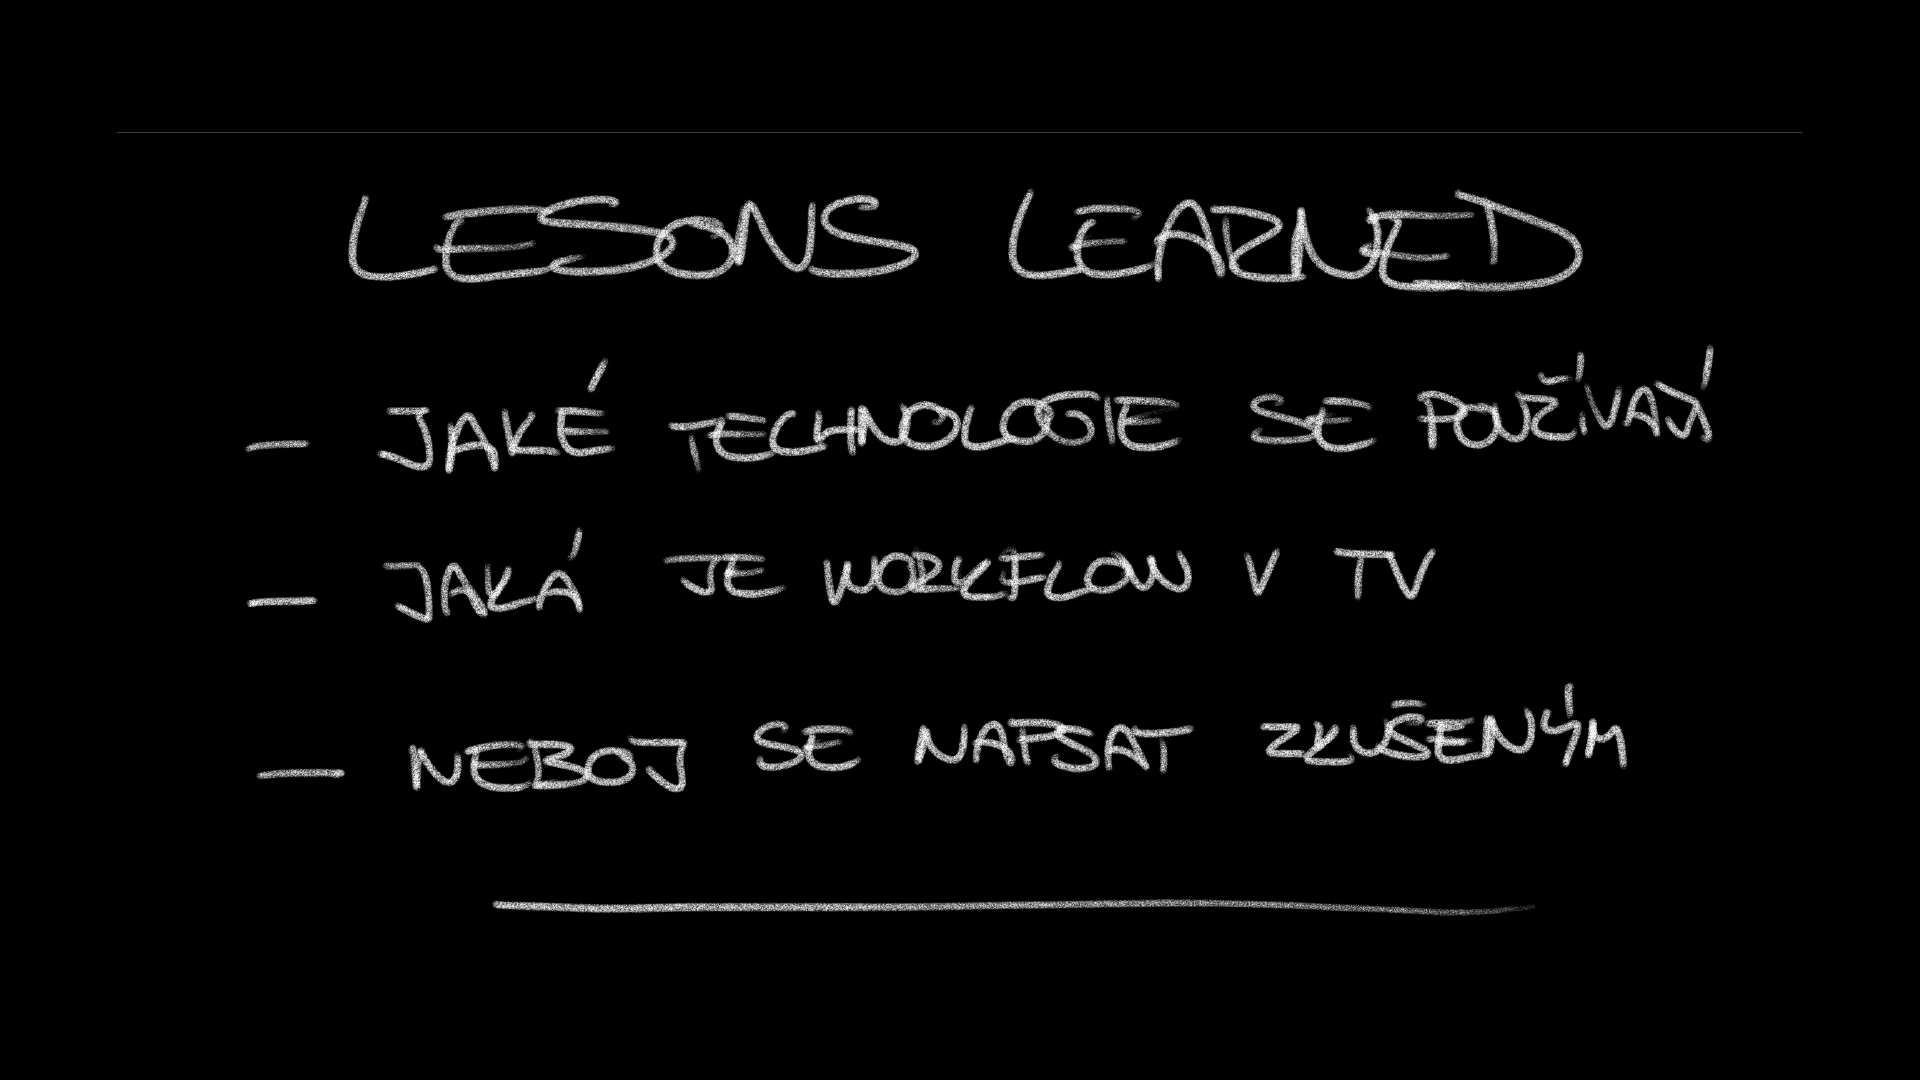 LESONS LEARNED
- JAKÉ TECHNOLOGIE SE POUŽÍVAJÍ
- JAKÁ JE WORKFLOW V TV
- NEBOJ SE NAPSAT ZKUŠENÝM